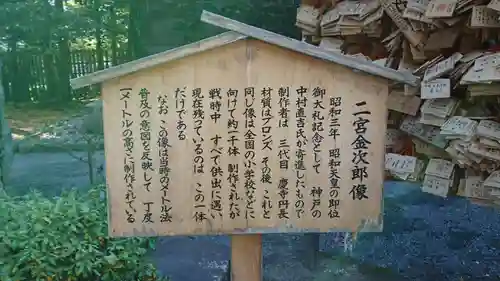 二宮金次郎像
昭和三年 昭和天皇の即位
御大礼記念として 神戸の
中村直吉氏が寄進したもので
制作者は 三代目 慶寺丹長
材質はブロンズ その後 これと
同じ像は全国の小学校などに
向けて約一千体 制作されたが
戦時中 すべて供出に遇い
現在残っているのは この一体
だけである
なお この像は当時のメートル法
普及の意図を反映して 丁度
一メートルの高さに制作されている